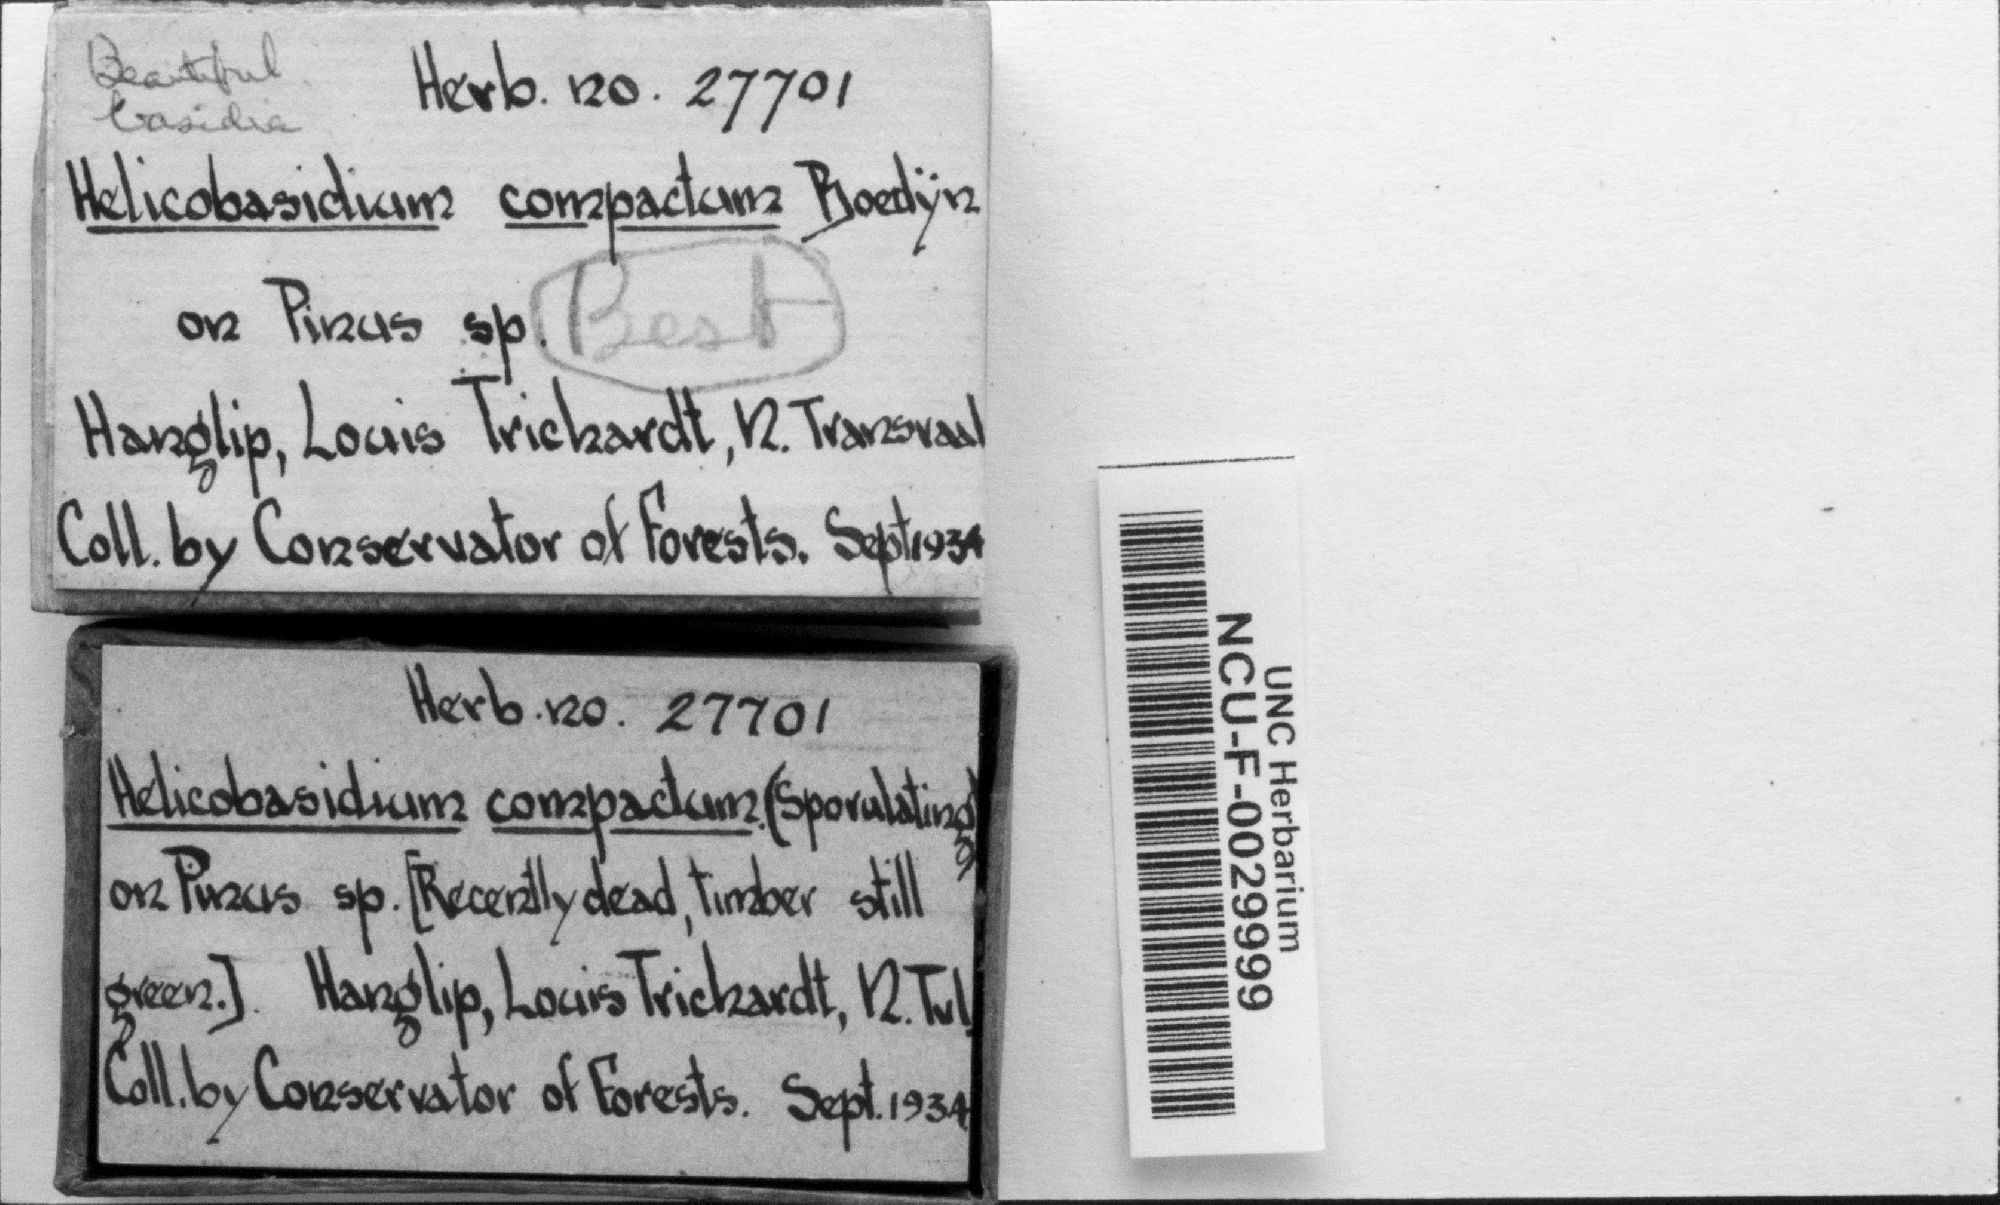 Beautiful
basidia
Herb. no. 27701
Helicobasidium compactum Boedijn
on Pinus sp.
Best
Hanglip, Louis Trichardt, N. Transvaal
Coll. by Conservator of Forests. Sept 1934
Herb. no. 27701
Helicobasidium compactum. (Sporulating)
on Pinus sp. [Recently dead, timber still
green.]. Hanglip, Louis Trichardt, N. Tvl.
Coll. by Conservator of Forests. Sept. 1934
UNC Herbarium
NCU-F-0029999